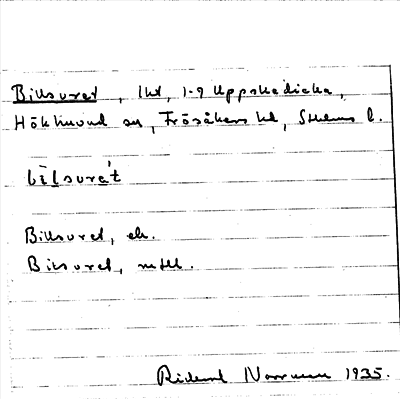 Billsvret, lht, 1-9 Uppskedicka,
Hökhuvud sn, Frösåkers hd, Sthlms l.
bīlsvre̱ˋt
Billsvret, ek.
Bilsvret, mtbl.
Rickard Norrman 1935.